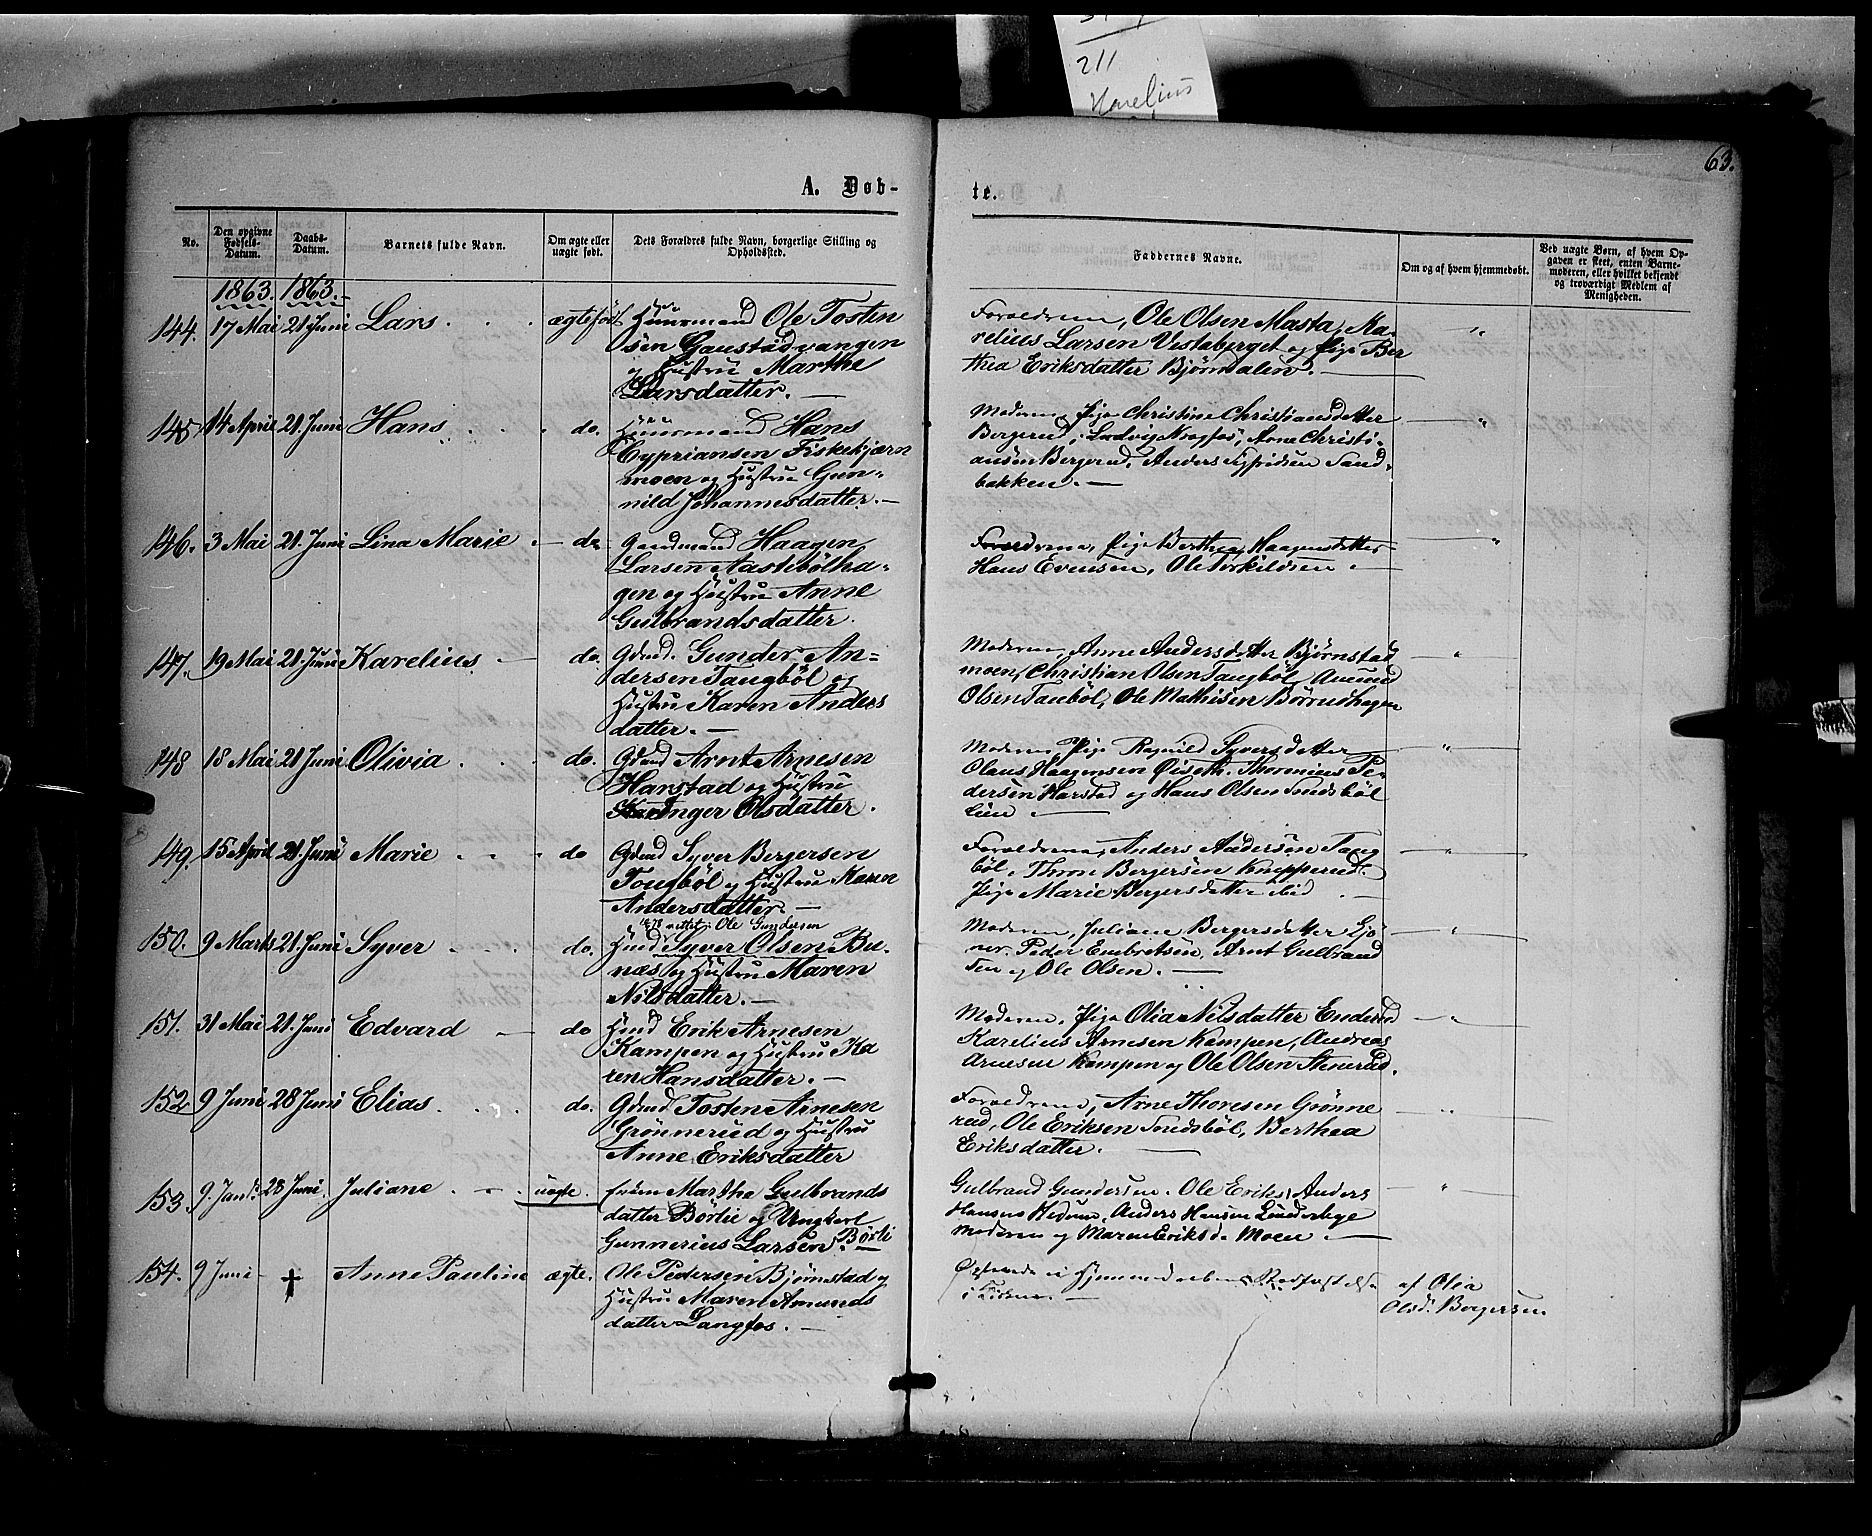 211
Karelius
63.
A. Døb-
te.
No.
Den opgivne Fødsels-Datum.
Daabs-Datum.
Barnets fulde Navn.
Om ægte eller uægte født.
Dets Forældres fulde Navn, borgerlige Stilling og Opholdssted.
Faddernes Navne.
Om og af hvem hjemmedøbt.
Ved uægte Børn, af hvem Opgaven er skeet, enten Barnemoderen, eller hvilket bekjendt og troværdigt Medlem af Menigheden.
1863. 1863.
144. 17 Mai 21 Juni Lars ægtefødt Huusmand Ole Tosten
sen Gaustadvangen
og Hustru Marthe
Larsdatter.
Forældrene, Ole Olsen Masta, Ka-
relius Larsen Vestaberget og Pige Ber
thea Eriksdatter Bjørndalen.
145. 14 April 21 Juni Hans do. Huusmand Hans
Cypriansen Fiskekjærn
moen og Hustru Gun-
nild Johannesdatter.
Moderen, Pige Christine Christiansdatter
Bergerud, Ludvig Kragfos, Arne Christi-
ansen Bergerud, Anders Sand-
bakken.
146. 3 Mai 21. Juni Lina Marie do Gaardmand Haagen
Larsen Aasteböllha-
gen og Hustru Anne
Gulbrandsdatter.
Forældrene, Pige Berthea Haagensdatter
Hans Evensen, Ole Torkildsen.
147. 19 Mai 21. Juni Karelius do. Gdmd. Gunder An-
dersen Taugböl og
Hustru Karen Anders
datter.
Moderen, Anne Andersdatter Bjørnstad
moen, Christian Olsen Taugböl, Amund
Olsen Tauböl, Ole Mathisen Börreshagen
148 18 Mai 21 Juni Olivia do. Gdmd Arnt Arnesen
Harstad og Hustru
Inger Olsdatter.
Moderen, Pige Ragnild Syversdatter
Olaus Haagensen Øiseth, Thorinius Pe-
dersen Harstad og Hans Olsen Sundsböl
lien
149. 15 April 21. Juni Marie do Gdmd Syver Bergersen
Tougböl og Hustru Karen
Andersdatter.
Forældrene, Anders Andersen Taug
böl, Thron Bergersen Knapperud.
Pige Marie Bergersdatter ibid
1878 rettet: Ole Gundersen
150. 9 Marts 21. Juni Syver do. Hmd Syver Olsen Bu-
næs og Hustru Maren
Nilsdatter.
Moderen, Juliane Bergersdatter Gjö
Peder Embretsen, Arnt Gulbrand
sen og Ole Olsen.
151. 31 Mai 21. Juni Edvard do Hmd Erik Arnesen
Kampen og Hustru Ka
ren Hansdatter.
Moderen, Pige Olia Nilsdatter Enderud
Karelius Arnesen Kampen, Andreas
Arnesen Kampen og Ole Olsen Stenerud.
152 9 Juni 28 Juni Elias do. Gdmd Tosten Arnesen
Grönnerud og Hustru
Anne Eriksdatter
Forældrene, Arne Thoresen Grönne
rud, Ole Eriksen Sundsböl, Berthea
Eriksdatter.
153. 9. 28 Juni. Juliane uægte. Pigen Marthe Gulbrands
datter Börlie og Ungkarl
Gunnerius Larsen Börli
Gulbrand Gundersen. Ole Eriks, Anders
Hansens Hedum, Anders Hansen
Moderen og Maren Eriksd. Moen.
154. 9 Juni † Anne Pauline ægte. Ole Pedersen Bjørnstad og
Hustru Maren Amunds
datter Langfos.
i Hjemmedaabens Stadfæstelse
i Kirken.
af Olia
Olsd. Bergersen